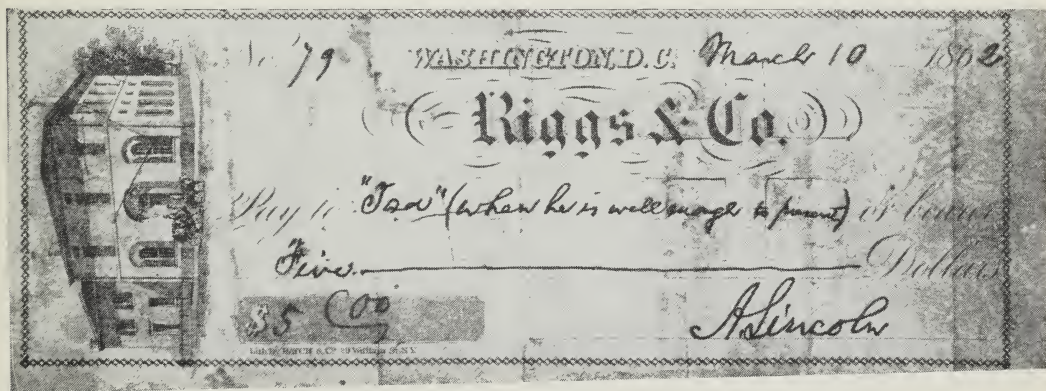 No. 79 WASHINGTON, D.C. March 10 1862
Riggs & Co.
Pay to "Tad" (when he is well enough to present) or bearer
Five Dollars
$5 00/
A. Lincoln